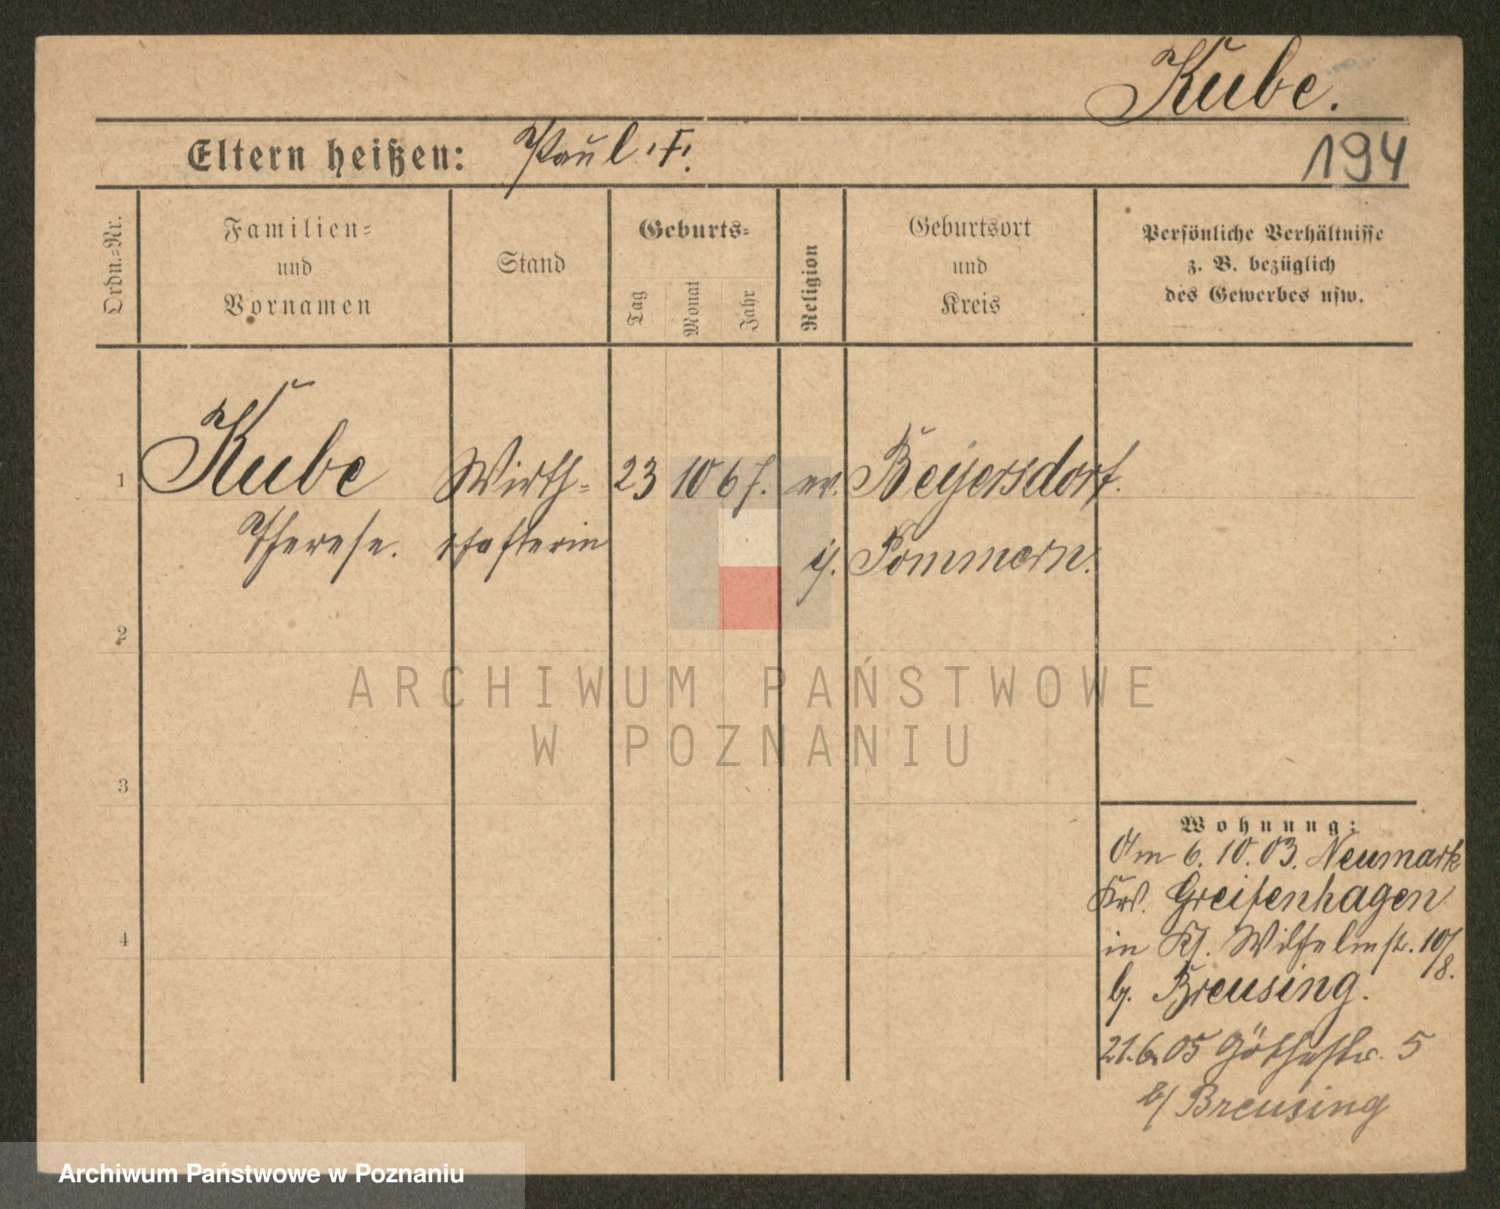 Kube.
194
Eltern heißen: Paul. F.
Ordn.-Nr.
Familien-
und
Vornamen
Stand
Geburts-
Tag
Monat
Jahr
Religion
Geburtsort
und
Kreis
Persönliche Verhältnisse
z. B. bezüglich
des Gewerbes usw.
1 Kube Wirth- 23 10 67. ev. Beyersdorf.
Therese. schafterin i/. Pommern.
2
3
4
Wohnung:
Am 6. 10. 03. Neumark
Krs. Greifenhagen
in Kl. Wilhelmstr. 10/8.
b/. Breusing.
21.6.05 Göthestr. 5
b/ Breusing
ARCHIWUM PAŃSTWOWE
W POZNANIU
Archiwum Państwowe w Poznaniu